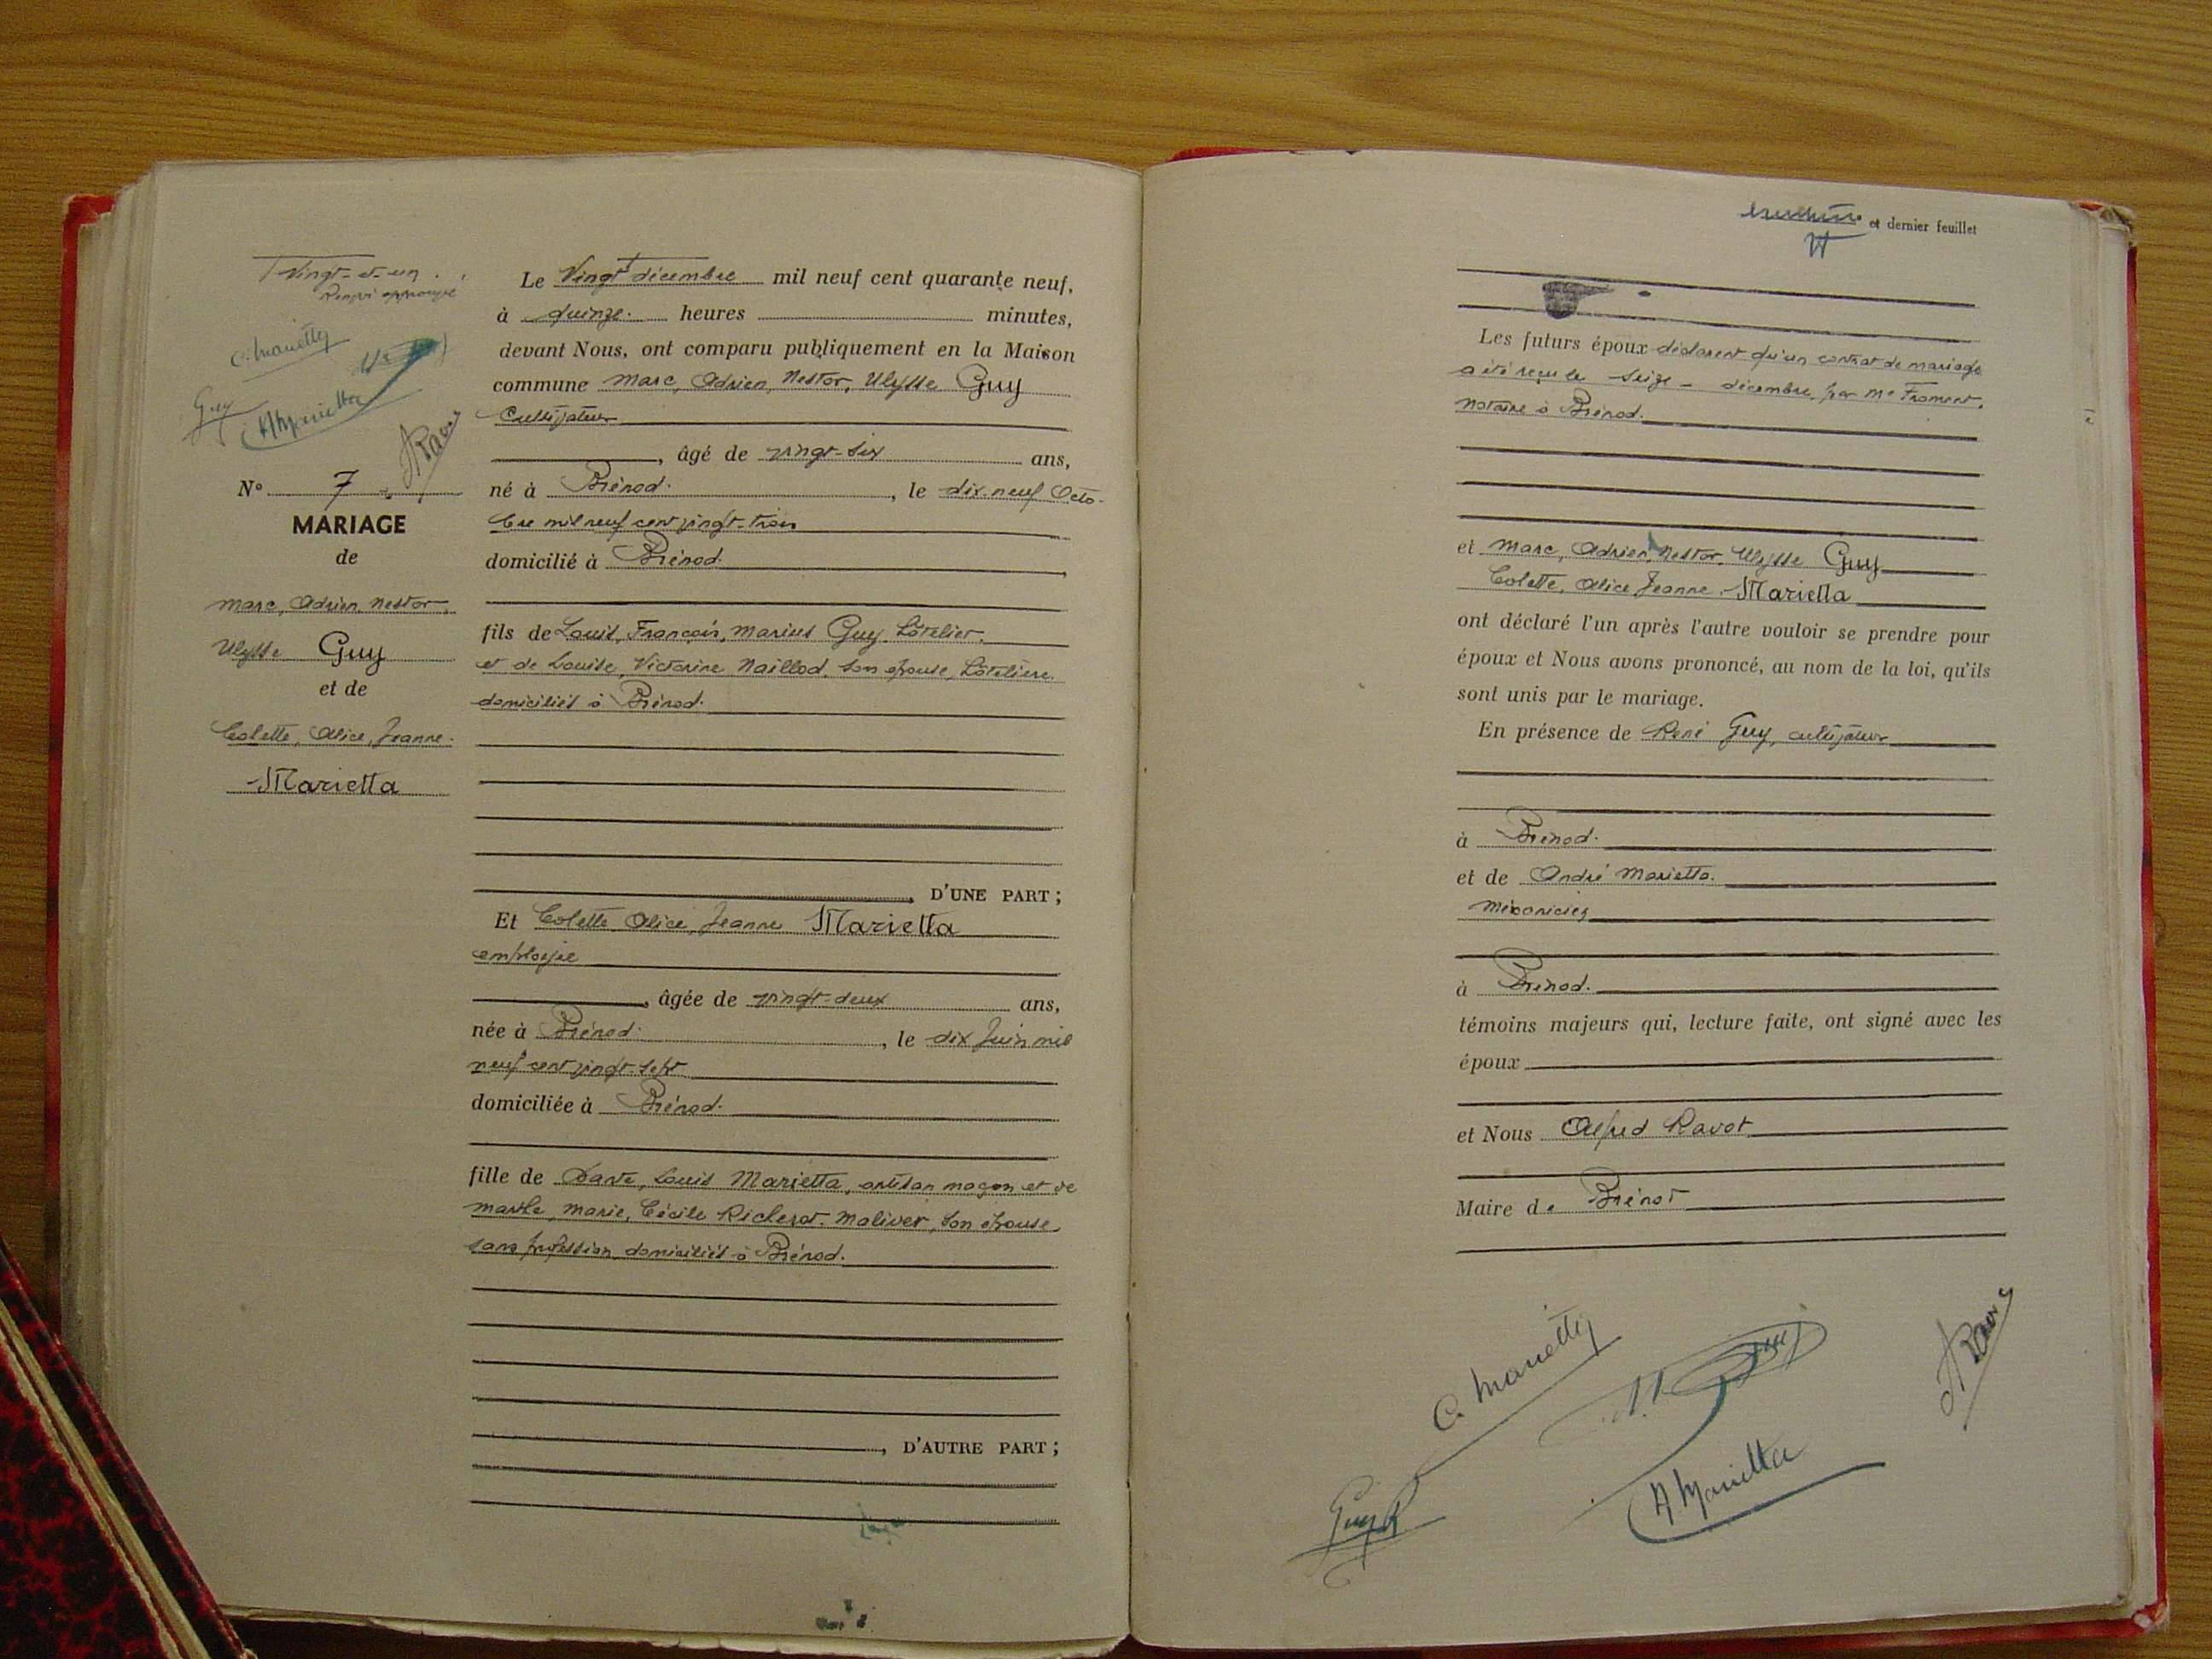 Vingt-et-un.
Renvoi approuvé
C. Marietta
Guy
A Marietta
A Ravot
N° 7
MARIAGE
de
Marc, Adrien, Nestor,
Ulysse Guy
et de
Colette, Alice, Jeanne
Marietta
Le Vingt décembre mil neuf cent quarante neuf,
à quinze heures minutes,
devant Nous, ont comparu publiquement en la Maison
commune Marc, Adrien, Nestor, Ulysse Guy
Cultivateur
, âgé de vingt-six ans,
né à Brénod, le dix-neuf Octo-
bre mil neuf cent vingt-trois
domicilié à Brénod.
fils de Louis, François, Marius Guy, hôtelier,
et de Louise, Victorine Naillod, son épouse, hôtelière,
domiciliés à Brénod.
D'UNE PART ;
Et Colette, Alice, Jeanne Marietta
employée
, âgée de vingt-deux ans,
née à Brénod, le dix Juin mil
neuf cent vingt-sept
domiciliée à Brénod.
fille de Dante, Louis Marietta, artisan maçon et de
Marthe, Marie, Cécile Richerot-Maliver, son épouse,
sans profession, domiciliés à Brénod.
, D'AUTRE PART ;
et dernier feuillet
Les futurs époux déclarent qu'un contrat de mariage
a été reçu le seize - décembre, par Me Froment,
notaire à Brénod.
et Marc, Adrien, Nestor, Ulysse Guy
Colette, Alice, Jeanne Marietta
ont déclaré l'un après l'autre vouloir se prendre pour
époux et Nous avons prononcé, au nom de la loi, qu'ils
sont unis par le mariage.
En présence de René Guy, cultivateur
à Brénod.
et de André Marietta.
mécanicien
à Brénod.
témoins majeurs qui, lecture faite, ont signé avec les
époux
et Nous Alfred Ravot
Maire de Brénod
C. Marietta
A Ravot
A Marietta
Guy R